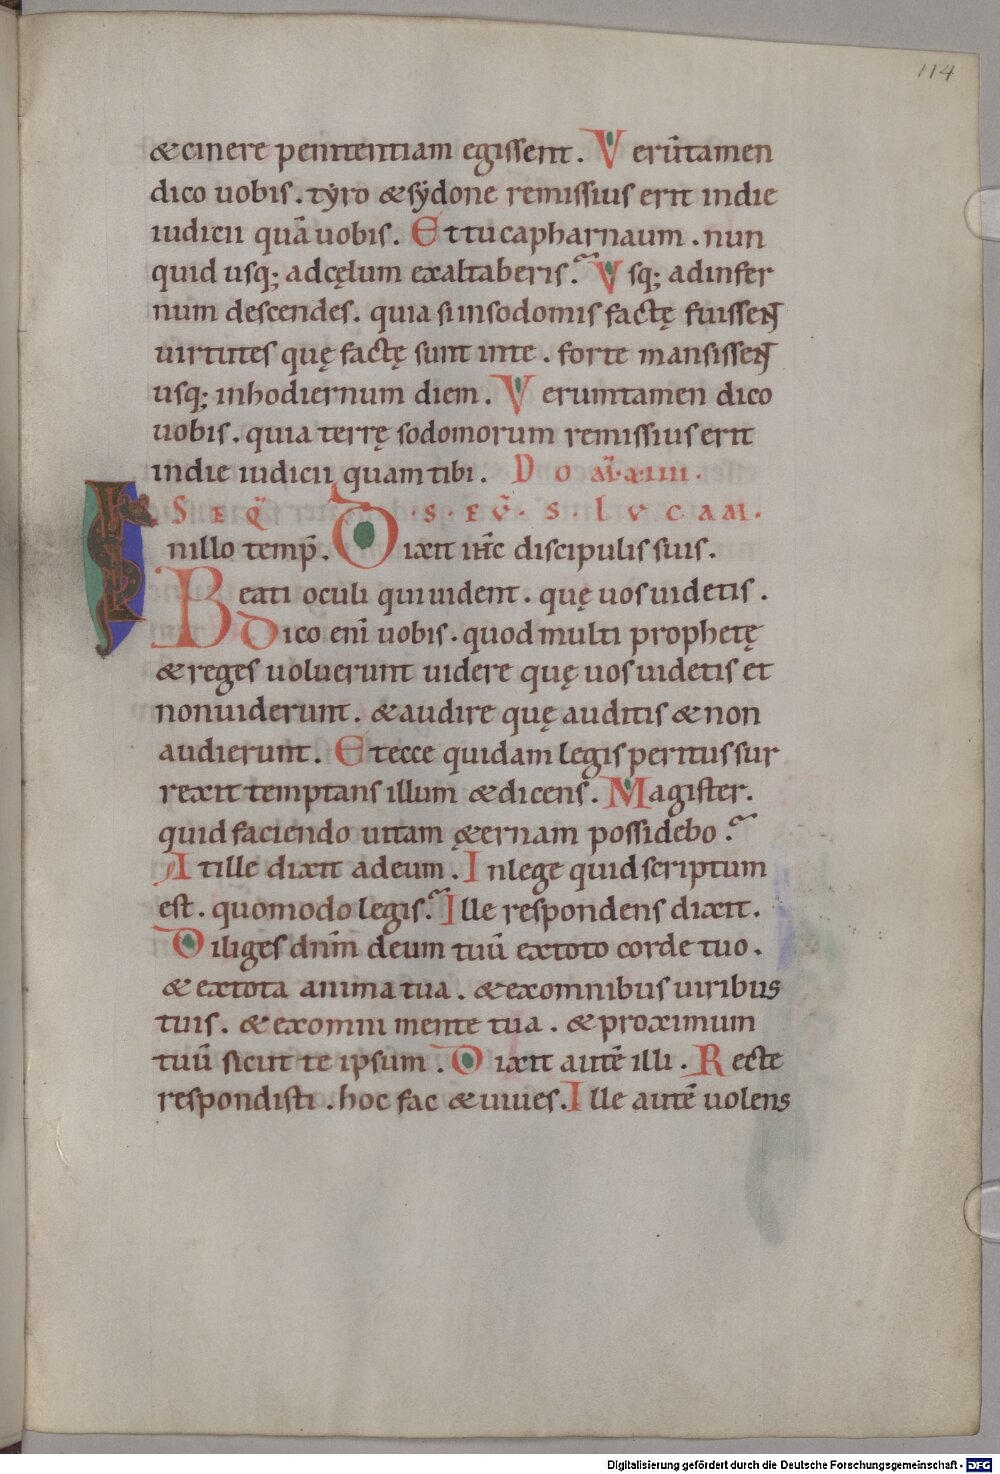 114
& cinere penitentiam egissent. Verūtamen
dico uobis. tyro & sydone remissius erit indie
iudicii quā uobis. Et tu capharnaum. nun
quid usq; ad cęlum exaltaberis? Usq; ad infer
num descendes. quia si insodomis factę fuissent
uirtutes quę factę sunt inte. forte mansissent
usq; inhodiernum diem. Veruntamen dico
uobis. quia terrę sodomorum remissius erit
indie iudicii quam tibi. Dom̄. xiiii.
SEQ̄. S. EṼ. S. LVCAM.
In illo temp̄. Dixit ihc̄ discipulis suis.
Beati oculi qui uident. quę uos uidetis.
Dico enī uobis. quod multi prophetę
& reges uoluerunt uidere quę uos uidetis et
non uiderunt. & audire quę auditis & non
audierunt. Et ecce quidam legis peritus sur
rexit temptans illum & dicens. Magister.
quid faciendo uitam ę&ernam possidebo?
At ille dixit ad eum. In lege quid scriptum
est. quomodo legis? Ille respondens dixit.
Diliges dn̄m deum tuū ex toto corde tuo.
& ex tota anima tua. & ex omnibus uiribus
tuis. & ex omni mente tua. & proximum
tuū sicut te ipsum. Dixit autē illi. Recte
respondisti. hoc fac & uiues. Ille autē uolens
Digitalisierung gefördert durch die Deutsche Forschungsgemeinschaft - DFG